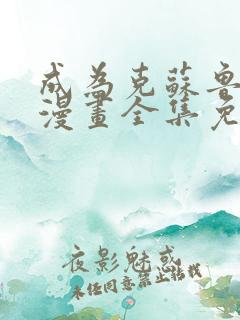 成為克蘇魯
漫畫全集免
夜影魅惑
未经同意禁止转载